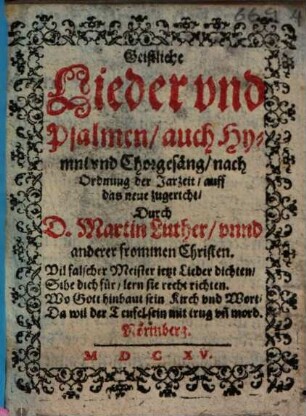 Geistliche
Lieder vnd
Psalmen/ auch Hy-
mni vnd Chorgesäng/ nach
Ordnung der Jarzeit/ auff
das neue zugericht/
Durch
D. Martin Luther/ vnnd
anderer frommen Christen.
Vil falscher Meister jetzt Lieder dichten/
Sihe dich für/ lern sie recht richten.
Wo Gott hinbaut sein Kirch vnd Wort/
Da wil der Teufel sein mit trug vñ mord.
Nörmberg.
M D C XV.